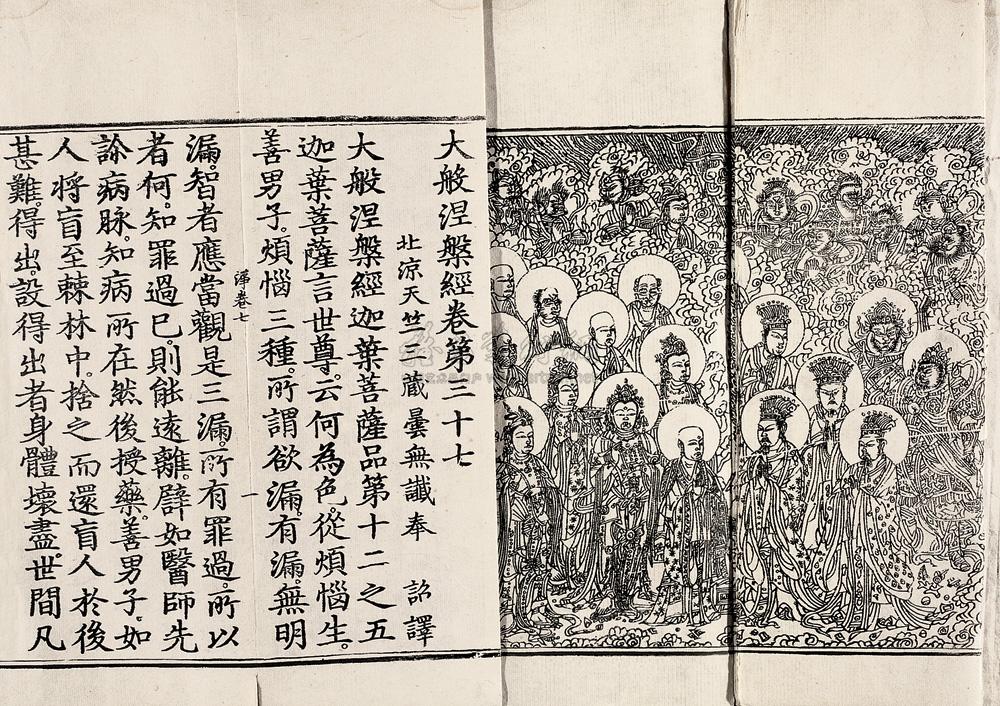 大般涅槃經卷第三十七
北涼天竺三藏曇無讖奉 詔譯
大般涅槃經迦葉菩薩品第十二之五
迦葉菩薩言世尊。云何為色。從煩惱生。
善男子。煩惱三種。所謂欲漏。有漏。無明
漏。智者應當觀是三漏。所有罪過。所以
者何。知罪過已。則能遠離。譬如醫師先
診病脉。知病所在然後授藥。善男子。如
人將盲至棘林中。捨之而還盲人於後
甚難得出。設得出者身體壞盡。世間凡